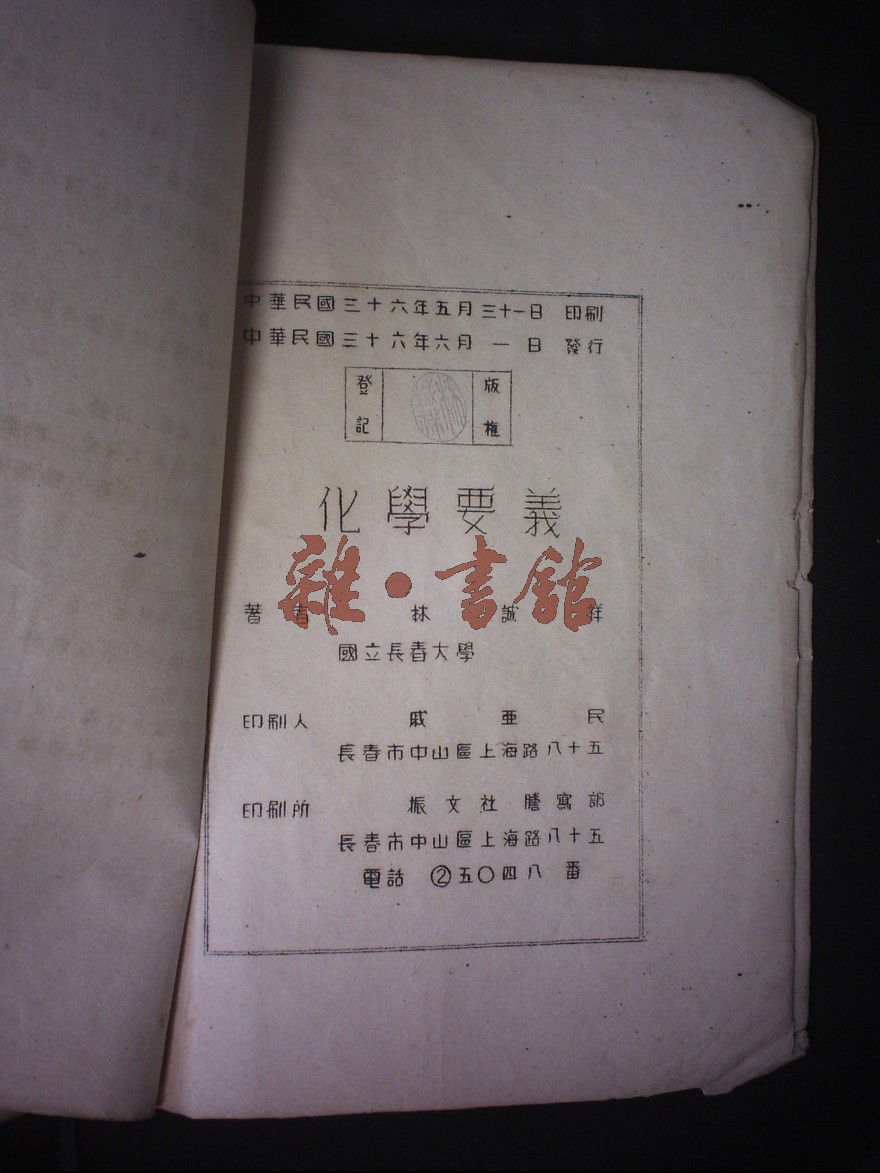 中華民國三十六年五月三十一日 印刷
中華民國三十六年六月 一 日 發行
版權
登記
化學要義
雜·書館
著者 林誠祥
國立長春大學
印刷人 戚亜民
長春市中山區上海路八十五
印刷所 振文社謄寫部
長春市中山區上海路八十五
電話 ②五〇四八番